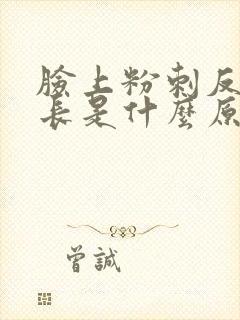 臉上粉刺反
長是什麼原
曾誠